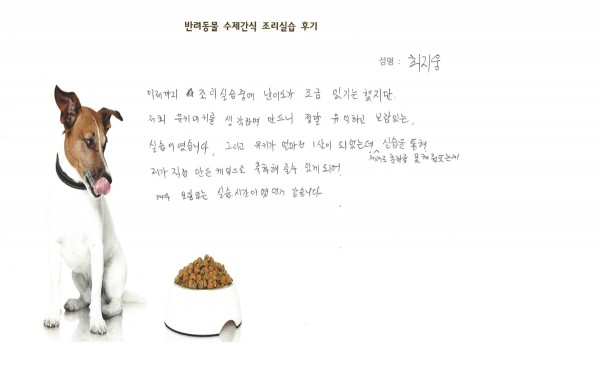 반려동물 수제간식 조리실습 후기
성명 : 최지웅
이제까지 조리실습중에 난이도가 조금 있기는 했지만
저희 유키더키를 생각하며 만드니 정말 유익하고 보람있는
실습이였습니다. 그리고 유키가 얼마전 1살이 되었는데, 실습을 통해
제대로 축하를 못해줬는데
제가 직접 만든 케익으로 축하해 줄수 있게 되어
매우 보람있는 실습시간이였던거 같습니다